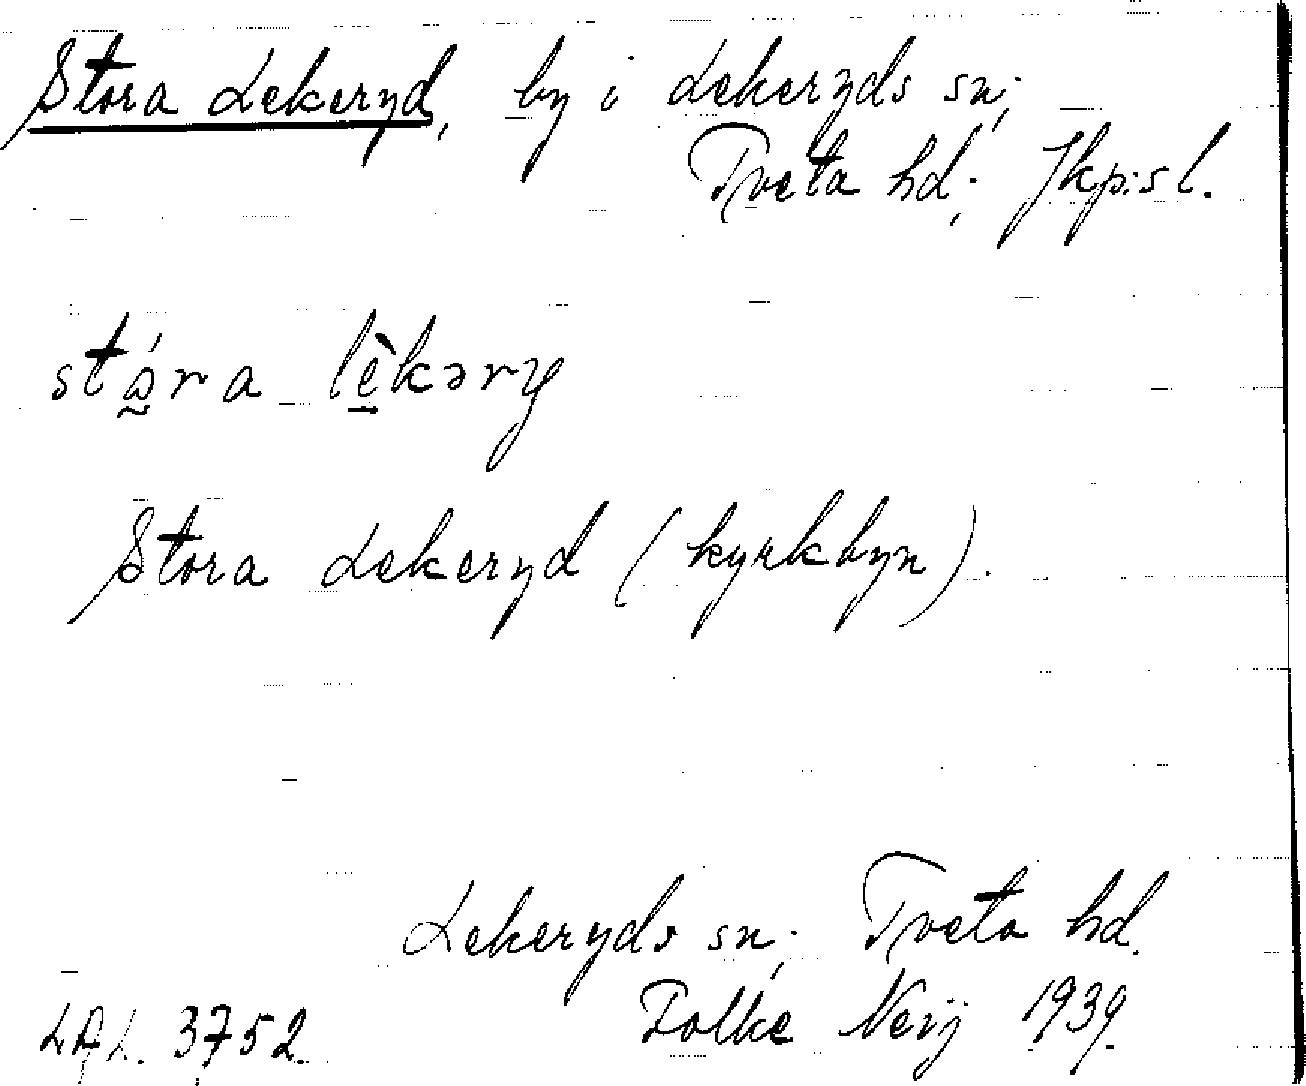 Stora Lekeryd, by i Lekeryds sn;
Tveta hd; Jkp:s l.
stó̰ra lè̱kəry
Stora Lekeryd (kyrkbyn).
Lekeryds sn; Tveta hd.
LAL. 3752. Folke Neij 1939.